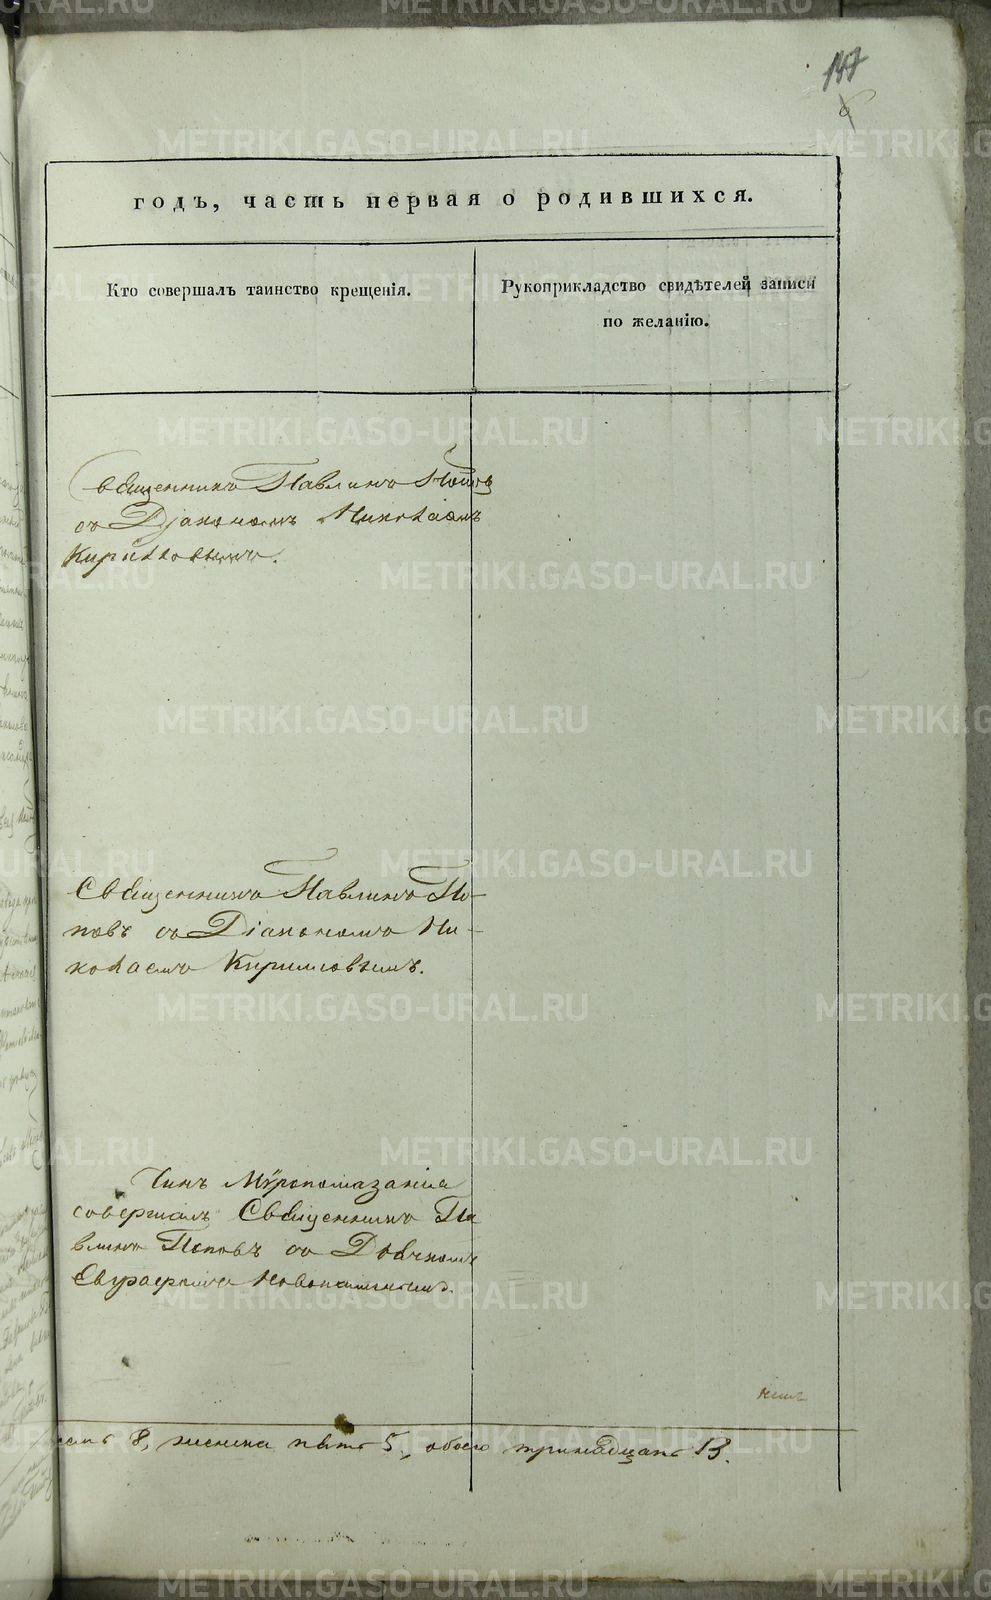 147
6
годъ, часть первая о родившихся.
Кто совершалъ таинство крещенія.
Рукоприкладство свидѣтелей записи
по желанію.
Священникъ Павлинъ Поповъ
съ Діакономъ Николаемъ
Кирилловымъ.
Священникъ Павлинъ По-
повъ съ Діакономъ Ни-
колаемъ Кирилловымъ.
Чинъ Мѵропомазанія
совершалъ Священникъ Па
влинъ Поповъ съ Дьячкомъ
Евграфомъ
8, женска пять 5, обоего тринадцать 13.
METRIKI.GASO-URAL.RU